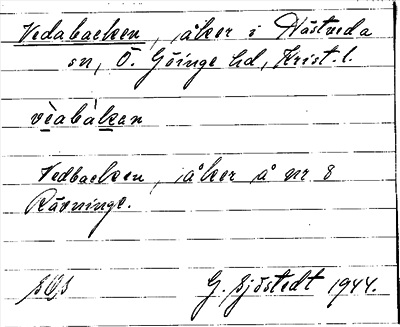 Vedabacken, åker i Hästveda
sn, Ö. Göinge hd, Krist. l.
vèabàkan
Vedbacken, åker å nr 8
Rävninge.
G. Sjöstedt 1944.